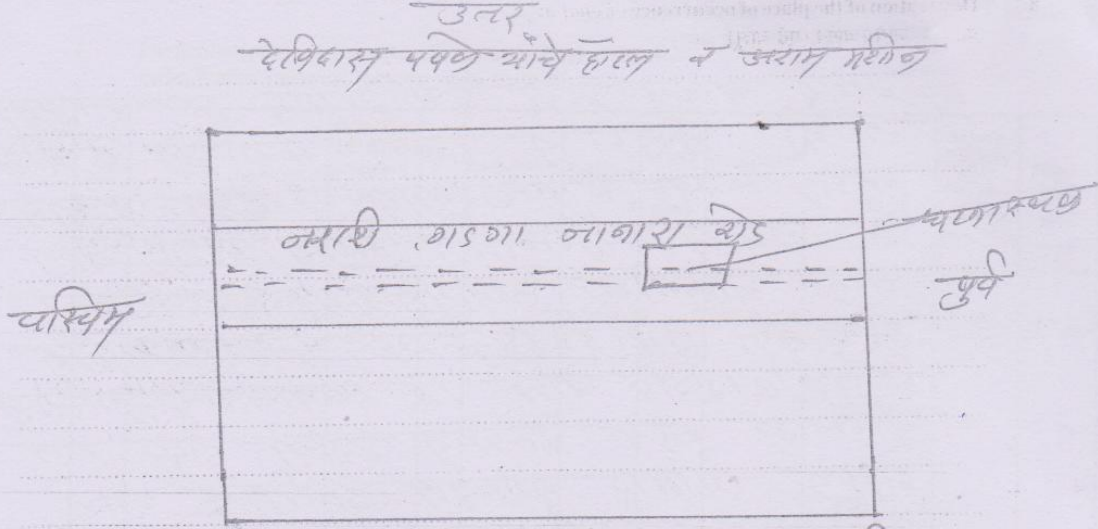 उत्तर
देविदास पवळे यांचे हॉटेल व आराम मशिन
नरसि गडगा जानारा रोड
घटनास्थळ
पुर्व
पश्चिम